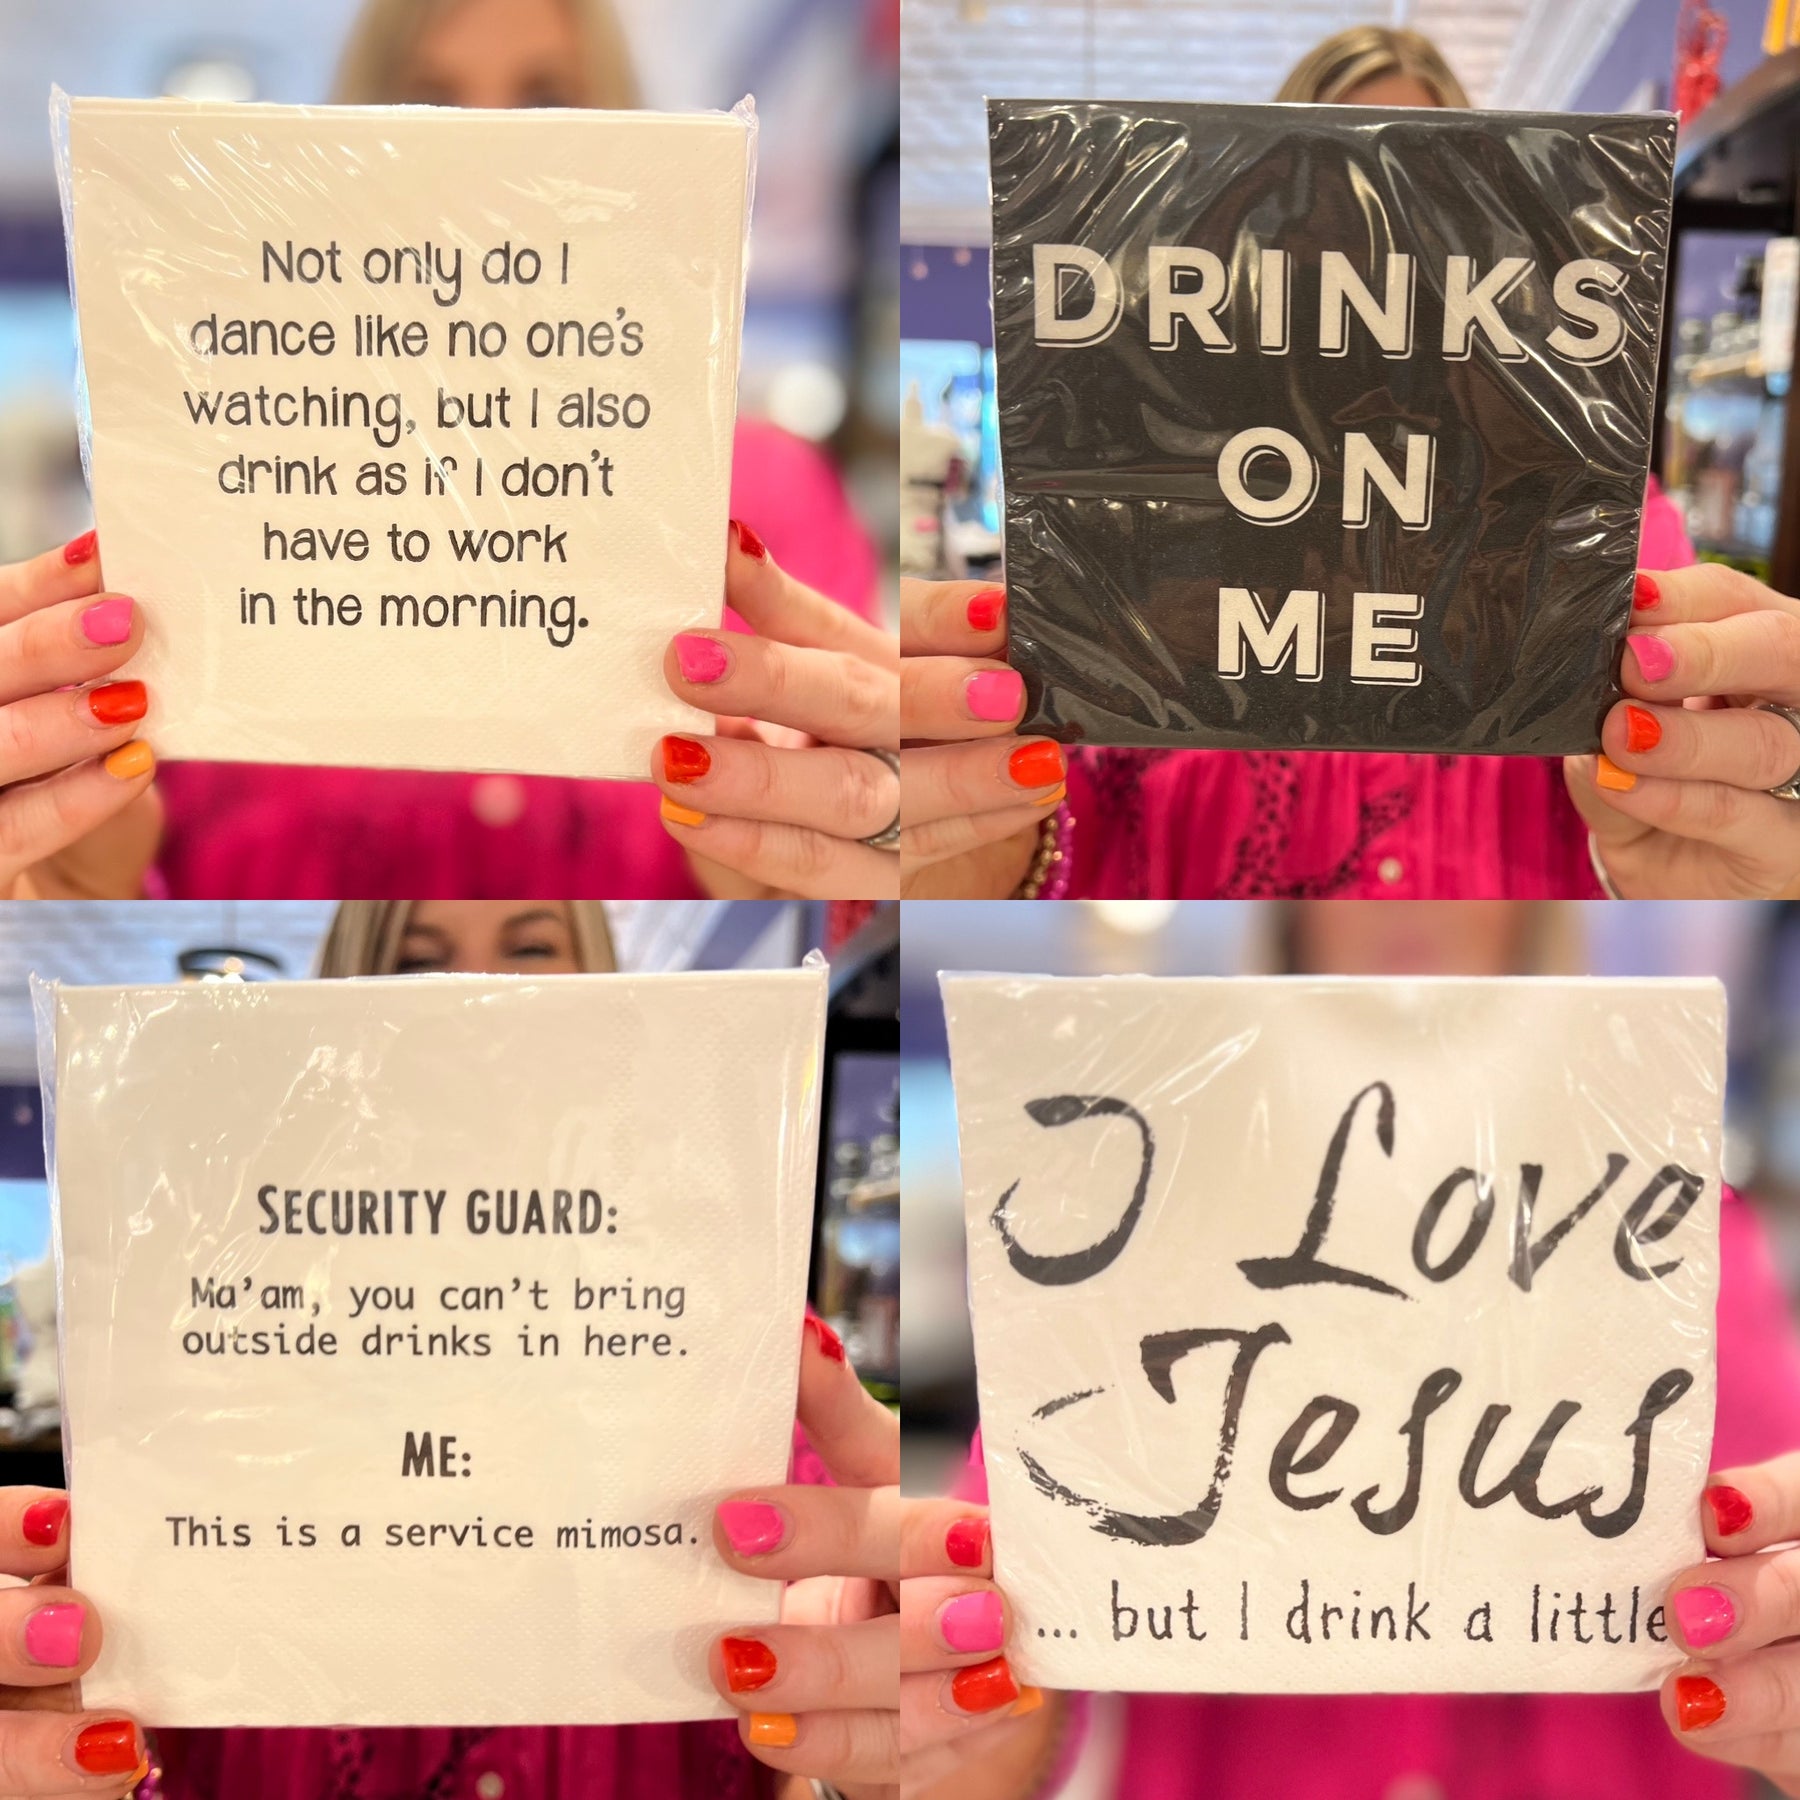 Not only do I
dance like no one's
watching, but I also
drink as if I don't
have to work
in the morning.
DRINKS
ON
ME
SECURITY GUARD:
Ma'am, you can't bring
outside drinks in here.
ME:
This is a service mimosa.
I Love
Jesus
... but I drink a little